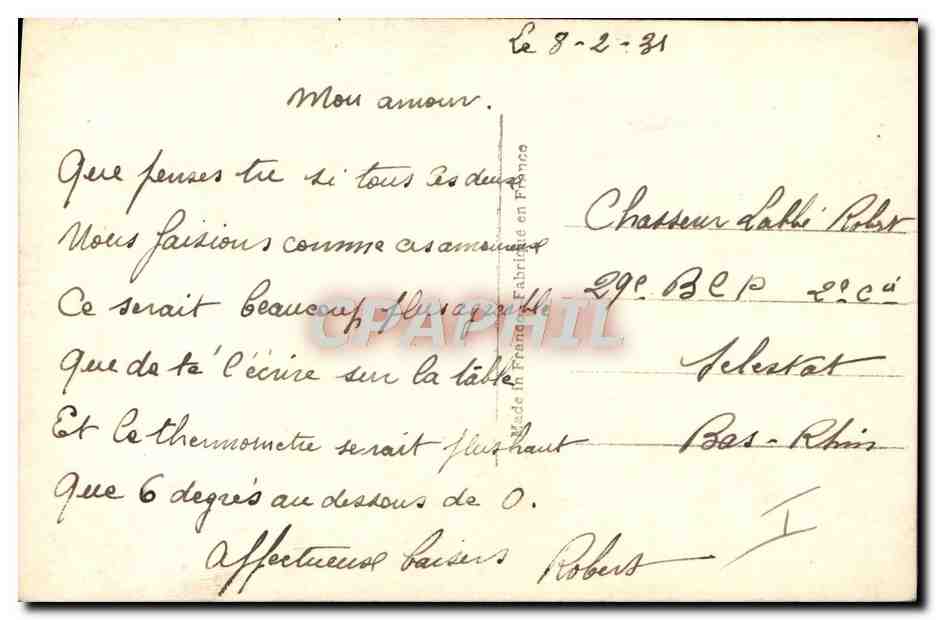 Le 8-2-31
Mon amour.
Que penses tu si tous les deux
Nous faisions comme ces amoureux
Ce serait beaucoup plus agréable
Que de té l'écrire sur la table
Et le thermometre serait plus haut
Que 6 degrés au dessous de 0.
Affectueux baisers Robert
Made in France - Fabriqué en France
Chasseur Labbé Robert
29e BCP 2e Cie
Selestat
Bas-Rhin
I
CPAPHIL